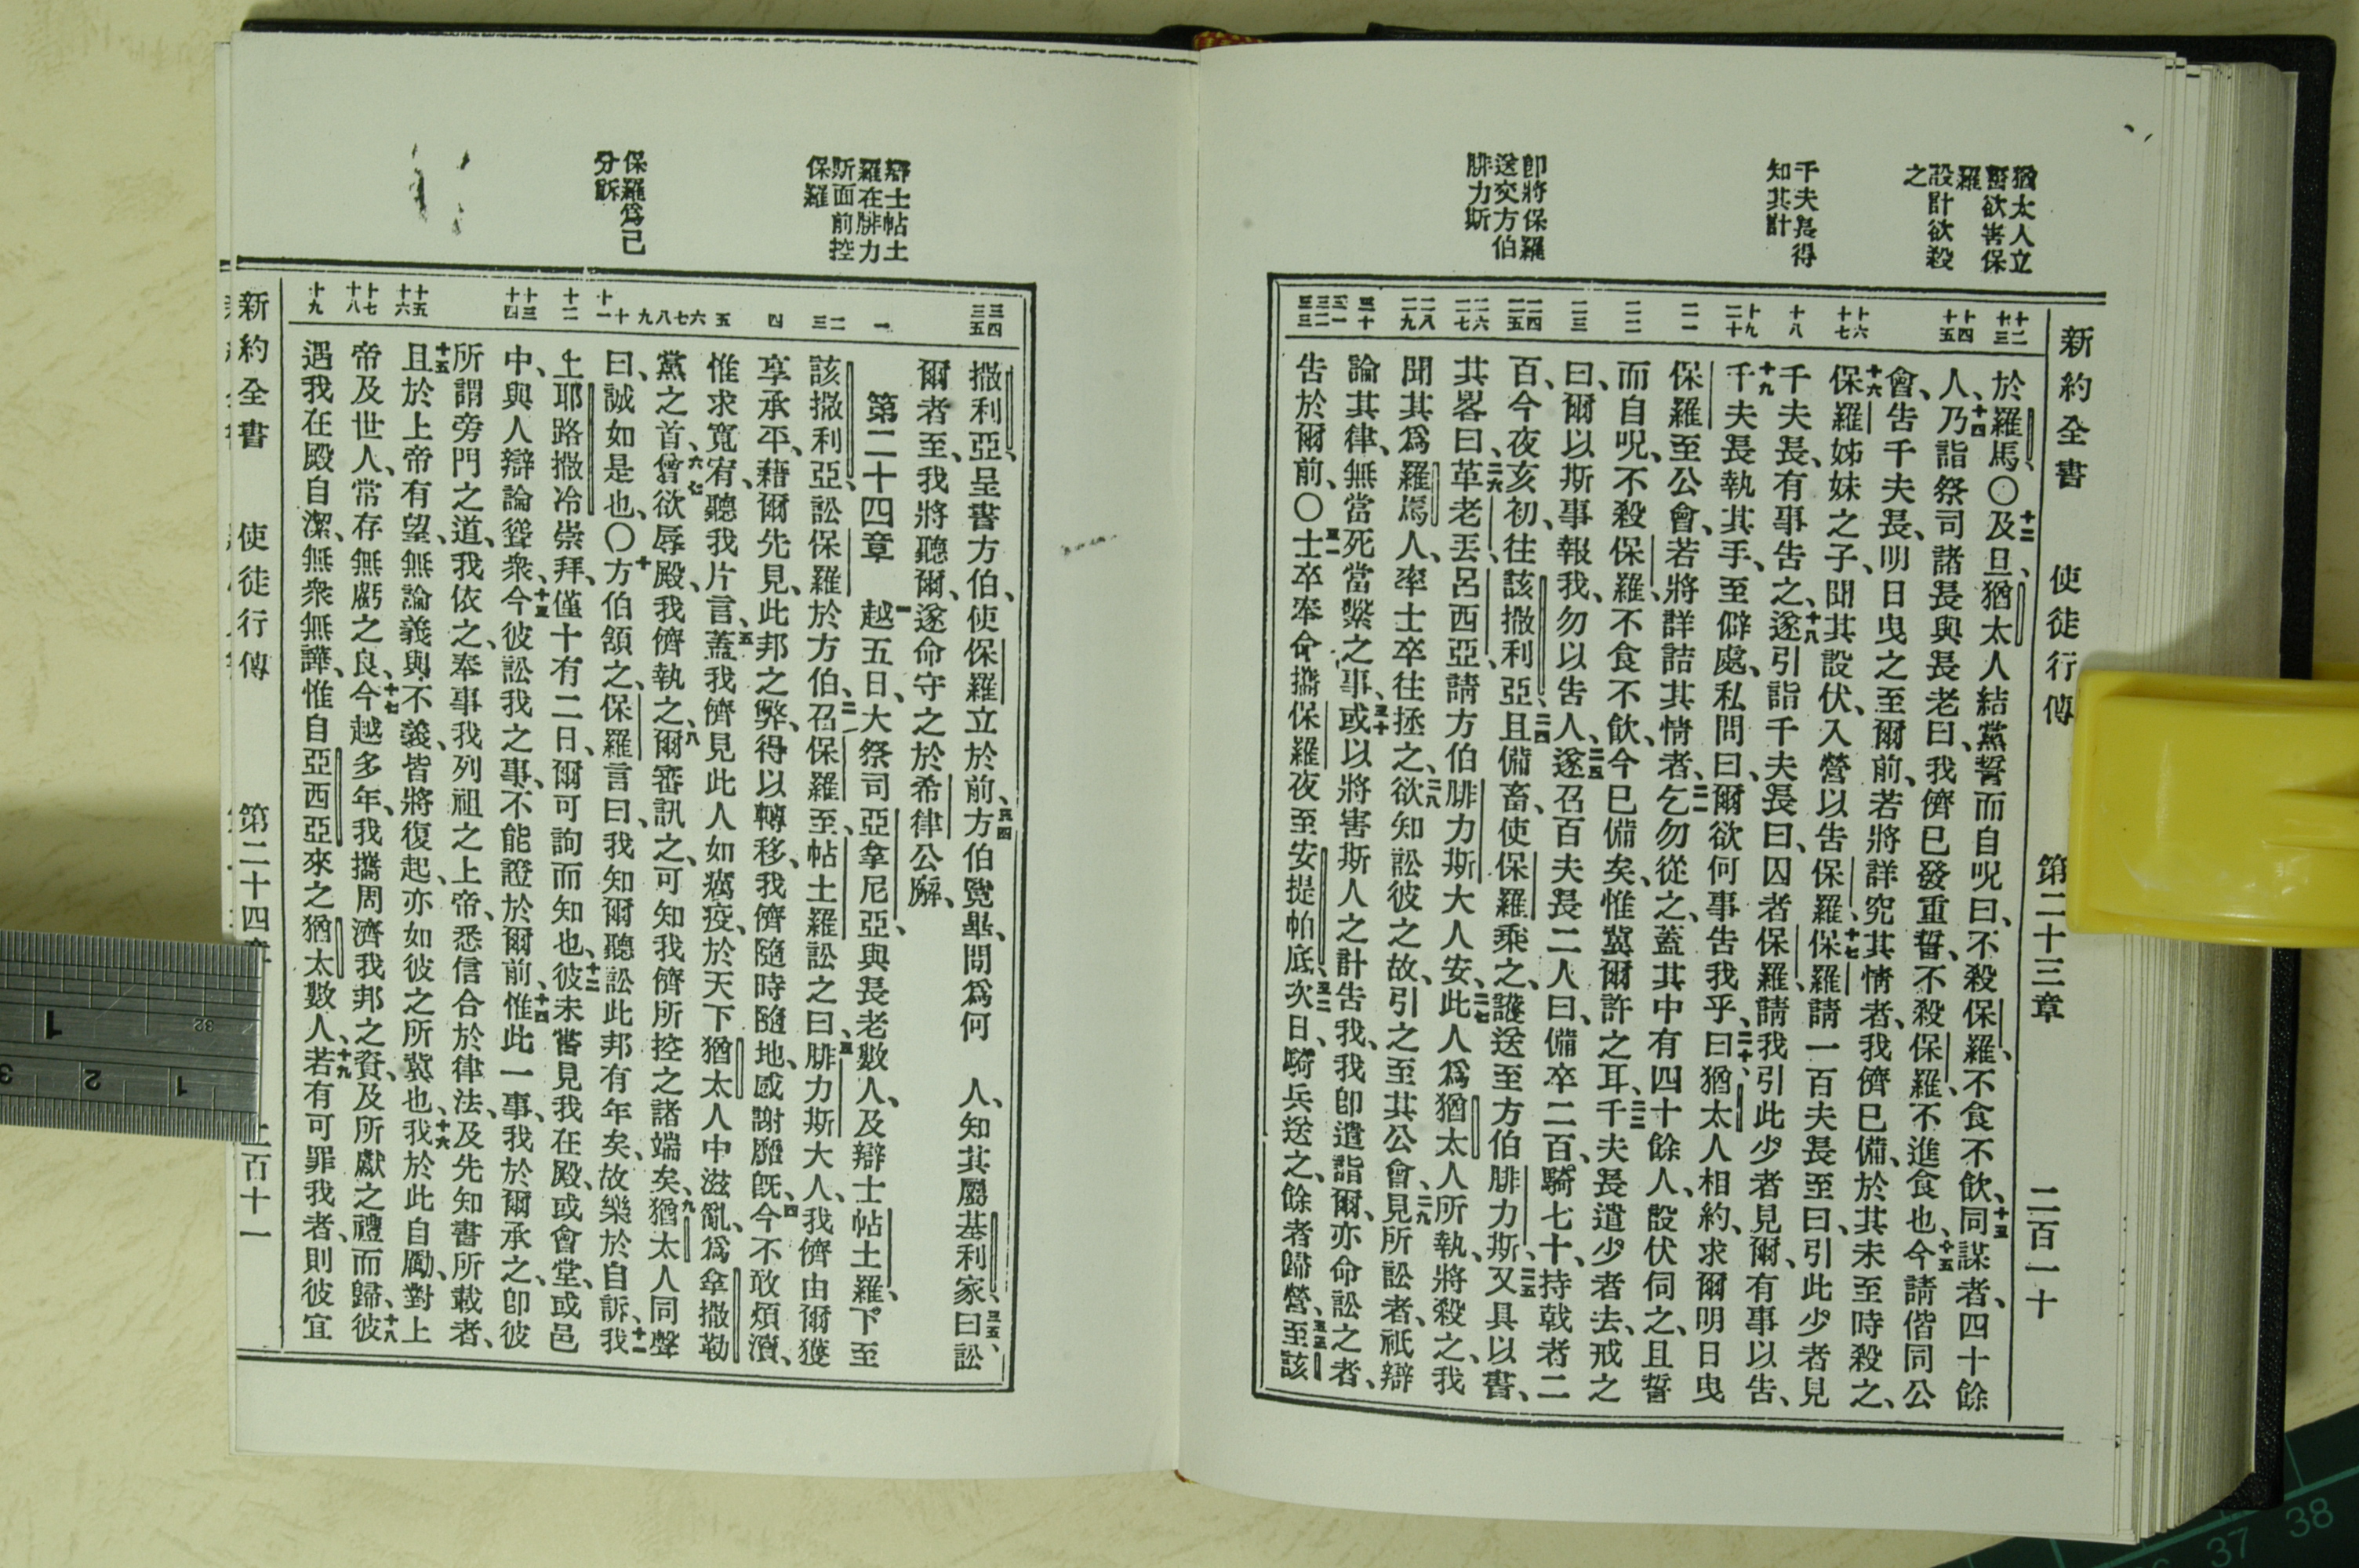 新約全書　使徒行傳　第二十三章　二百一十
猶太人立
誓欲害保
羅
設計欲殺
之
千夫長得
知其計
卽將保羅
送交方伯
腓力斯
十二 十三
十四 十五
十六 十七
十八
十九 二十
二一
二二
二三
二四 二五
二六 二七
二八 二九
三十
三一 三二 三三
於羅馬、〇十二及旦、猶太人結黨誓而自呪曰、不殺保羅、不食不飲、十三同謀者、四十餘
人、十四乃詣祭司諸長與長老曰、我儕已發重誓、不殺保羅、不進食也、十五今請偕同公
會、告千夫長、明日曳之至爾前、若將詳究其情者、我儕已備、於其未至時殺之、
十六保羅姊妹之子、聞其設伏、入營以告保羅、十七保羅請一百夫長至曰、引此少者見
千夫長、有事告之、十八遂引詣千夫長曰、囚者保羅、請我引此少者見爾、有事以告、
十九千夫長執其手、至僻處、私問曰、爾欲何事告我乎、二十曰、猶太人相約、求爾明日曳
保羅至公會、若將詳詰其情者、二一乞勿從之、蓋其中有四十餘人、設伏伺之、且誓
而自呪、不殺保羅、不食不飲、今已備矣、惟冀爾許之耳、二二千夫長遣少者去、戒之
曰、爾以斯事報我、勿以告人、二三遂召百夫長二人曰、備卒二百、騎七十、持戟者二
百、今夜亥初、往該撒利亞、二四且備畜、使保羅乘之、護送至方伯腓力斯、二五又具以書、
其畧曰、二六革老丟呂西亞、請方伯腓力斯大人安、二七此人爲猶太人所執、將殺之、我
聞其爲羅馬人、率士卒往拯之、二八欲知訟彼之故、引之至其公會、二九見所訟者、祇辯
論其律、無當死當繫之事、三十或以將害斯人之計告我、我卽遣詣爾、亦命訟之者、
告於爾前、〇三一士卒奉命、攜保羅夜至安提帕底、三二次日、騎兵送之、餘者歸營、三三至該
辯士帖土
羅在腓力
斯面前控
保羅
保羅爲己
分訴
三四 三五
一
二 三
四
五
六 七 八 九
十 十一
十二
十三 十四
十五 十六
十七 十八
十九
撒利亞、呈書方伯、使保羅立於前、三四方伯覽畢、問爲何　人、知其屬基利家、三五曰、訟
爾者至、我將聽爾、遂命守之於希律公廨、
第二十四章　一越五日、大祭司亞拿尼亞、與長老數人、及辯士帖土羅、下至
該撒利亞、訟保羅於方伯、二召保羅至、帖土羅訟之曰、三腓力斯大人、我儕由爾獲
享承平、藉爾先見、此邦之弊、得以轉移、我儕隨時隨地、感謝靡旣、四今不敢煩瀆、
惟求寬宥、聽我片言、五蓋我儕見此人如癘疫、於天下猶太人中滋亂、爲拿撒勒
黨之首、六曾欲辱殿、我儕執之、八爾審訊之、可知我儕所控之諸端矣、九猶太人同聲
曰、誠如是也、〇十方伯頷之、保羅言曰、我知爾聽訟此邦有年矣、故樂於自訴、十一我
上耶路撒冷崇拜、僅十有二日、爾可詢而知也、十二彼未嘗見我在殿、或會堂、或邑
中、與人辯論聳衆、十三今彼訟我之事、不能證於爾前、十四惟此一事、我於爾承之、卽彼
所謂旁門之道、我依之、奉事我列祖之上帝、悉信合於律法、及先知書所載者、
十五且於上帝有望、無論義與不義、皆將復起、亦如彼之所冀也、十六我於此自勵、對上
帝及世人、常存無虧之良、十七今越多年、我攜周濟我邦之資、及所獻之禮而歸、十八彼
遇我在殿自潔、無衆無譁、惟自亞西亞來之猶太數人、十九若有可罪我者、則彼宜
新約全書　使徒行傳　第二十四　百十一